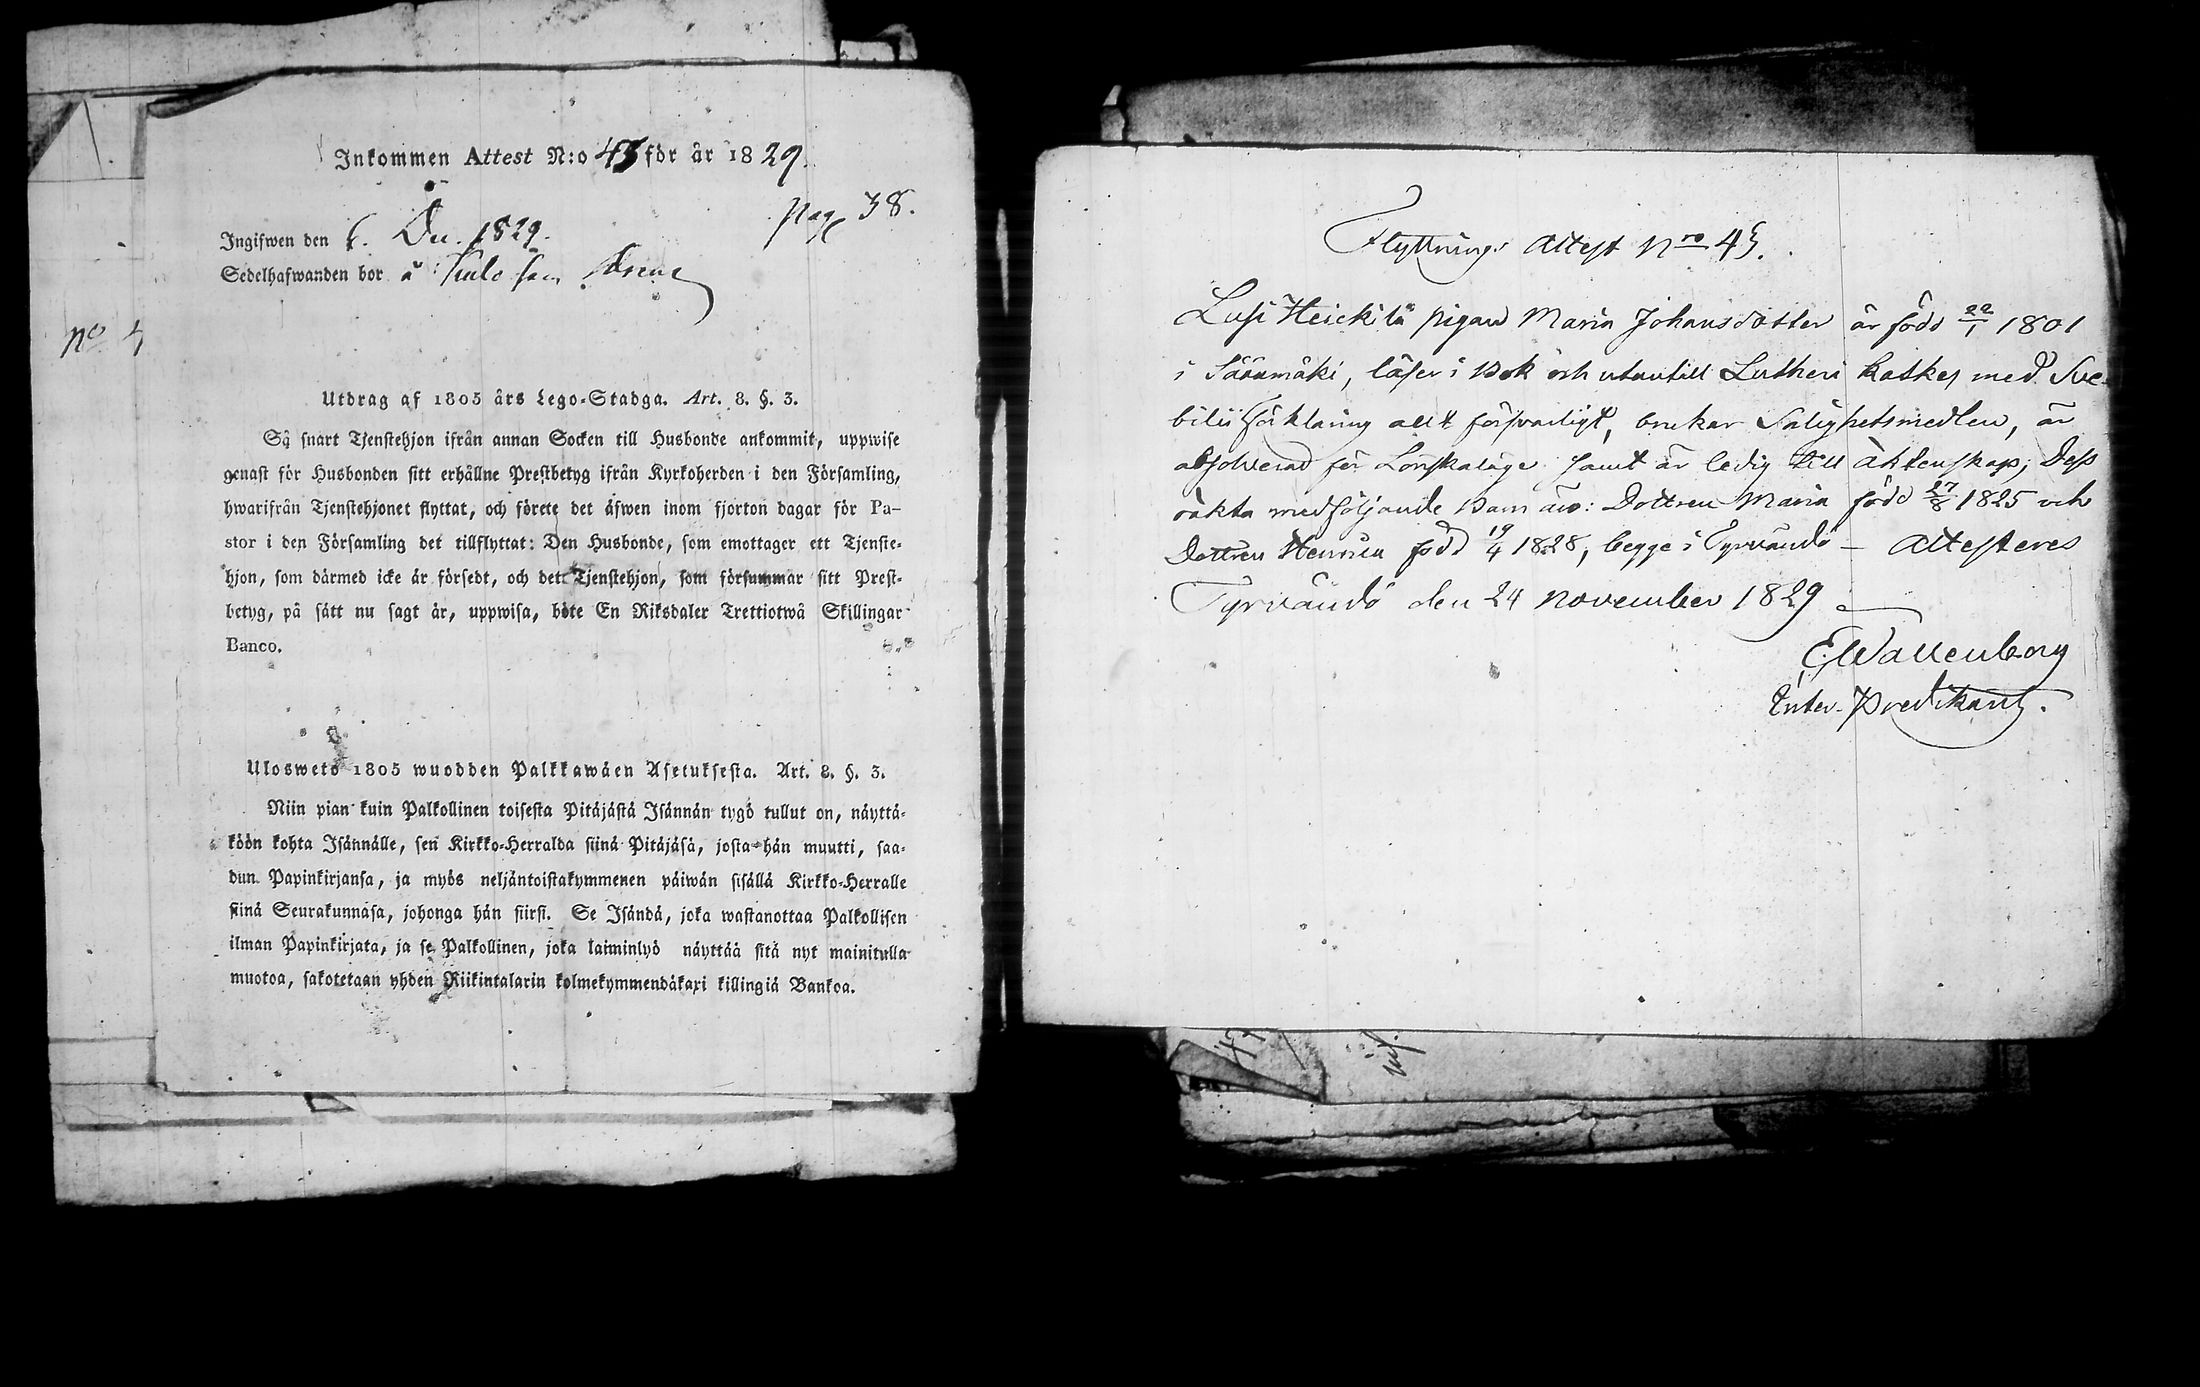 Inkommen Attest N:o 43 för år 1829.
pag 38.
Ingifwen den 6. Dec. 1829.
Sedelhafwanden bor å
No 4
Utdrag af 1805 års Lego-Stadga. Art. 8. §. 3.
Så snart Tjenstehjon ifrån annan Socken till Husbonde ankommit, uppwise
genast för Husbonden sitt erhållne Prestbetyg ifrån Kyrkoherden i den Församling,
hwarifrån Tjenstehjonet flyttat, och förete det äfwen inom fjorton dagar för Pa-
stor i den Församling det tillflyttat: Den Husbonde, som emottager ett Tjenste-
hjon, som därmed icke är försedt, och dett Tjenstehjon, som försummar sitt Prest-
betyg, på sätt nu sagt är, uppwisa, böte En Riksdaler Trettiotwå Skillingar
Banco.
Ulosweto 1805 wuodden Palkkawäen Asetuksesta. Art. 8. §. 3.
Niin pian kuin Palkollinen toisesta Pitäjästä Isännän tygö tullut on, näyttä-
köön kohta Isännälle, sen Kirkko-Herralda siinä Pitäjäsä, josta hän muutti, saa-
dun Papinkirjansa, ja myös neljäntoistakymmenen päiwän sisällä Kirkko-Herralle
siinä Seurakunnasa, johonga hän siirsi. Se Isändä, joka wastanottaa Palkollisen
ilman Papinkirjata, ja se Palkollinen, joka laiminlyö näyttää sitä nyt mainitulla
muotoa, sakotetaan yhden Riikintalarin kolmekymmendäkaxi killingiä Bankoa.
Flyttnings Attest Nro 45.
Lusi Heickilä pigan Maria Johansdotter är född 22/1 1801
i Säämäki, läser i Bok och utantill Lutheri Katkes med Sve-
bilii förklaring allt försvarligt, brukar Salighetsmedlen, är
absolverad för Lönskaläge samt är ledig till Äktenskap; Dess
oäkta medföljande Barn äro: Dottren Maria född 27/8 1825 och
Dottren Henrica född 19/4 1828, begge i Tyrvändö — Attesteres
Tyrvändö den 24 November 1829
E Wallenborg
Enter. Predikant.